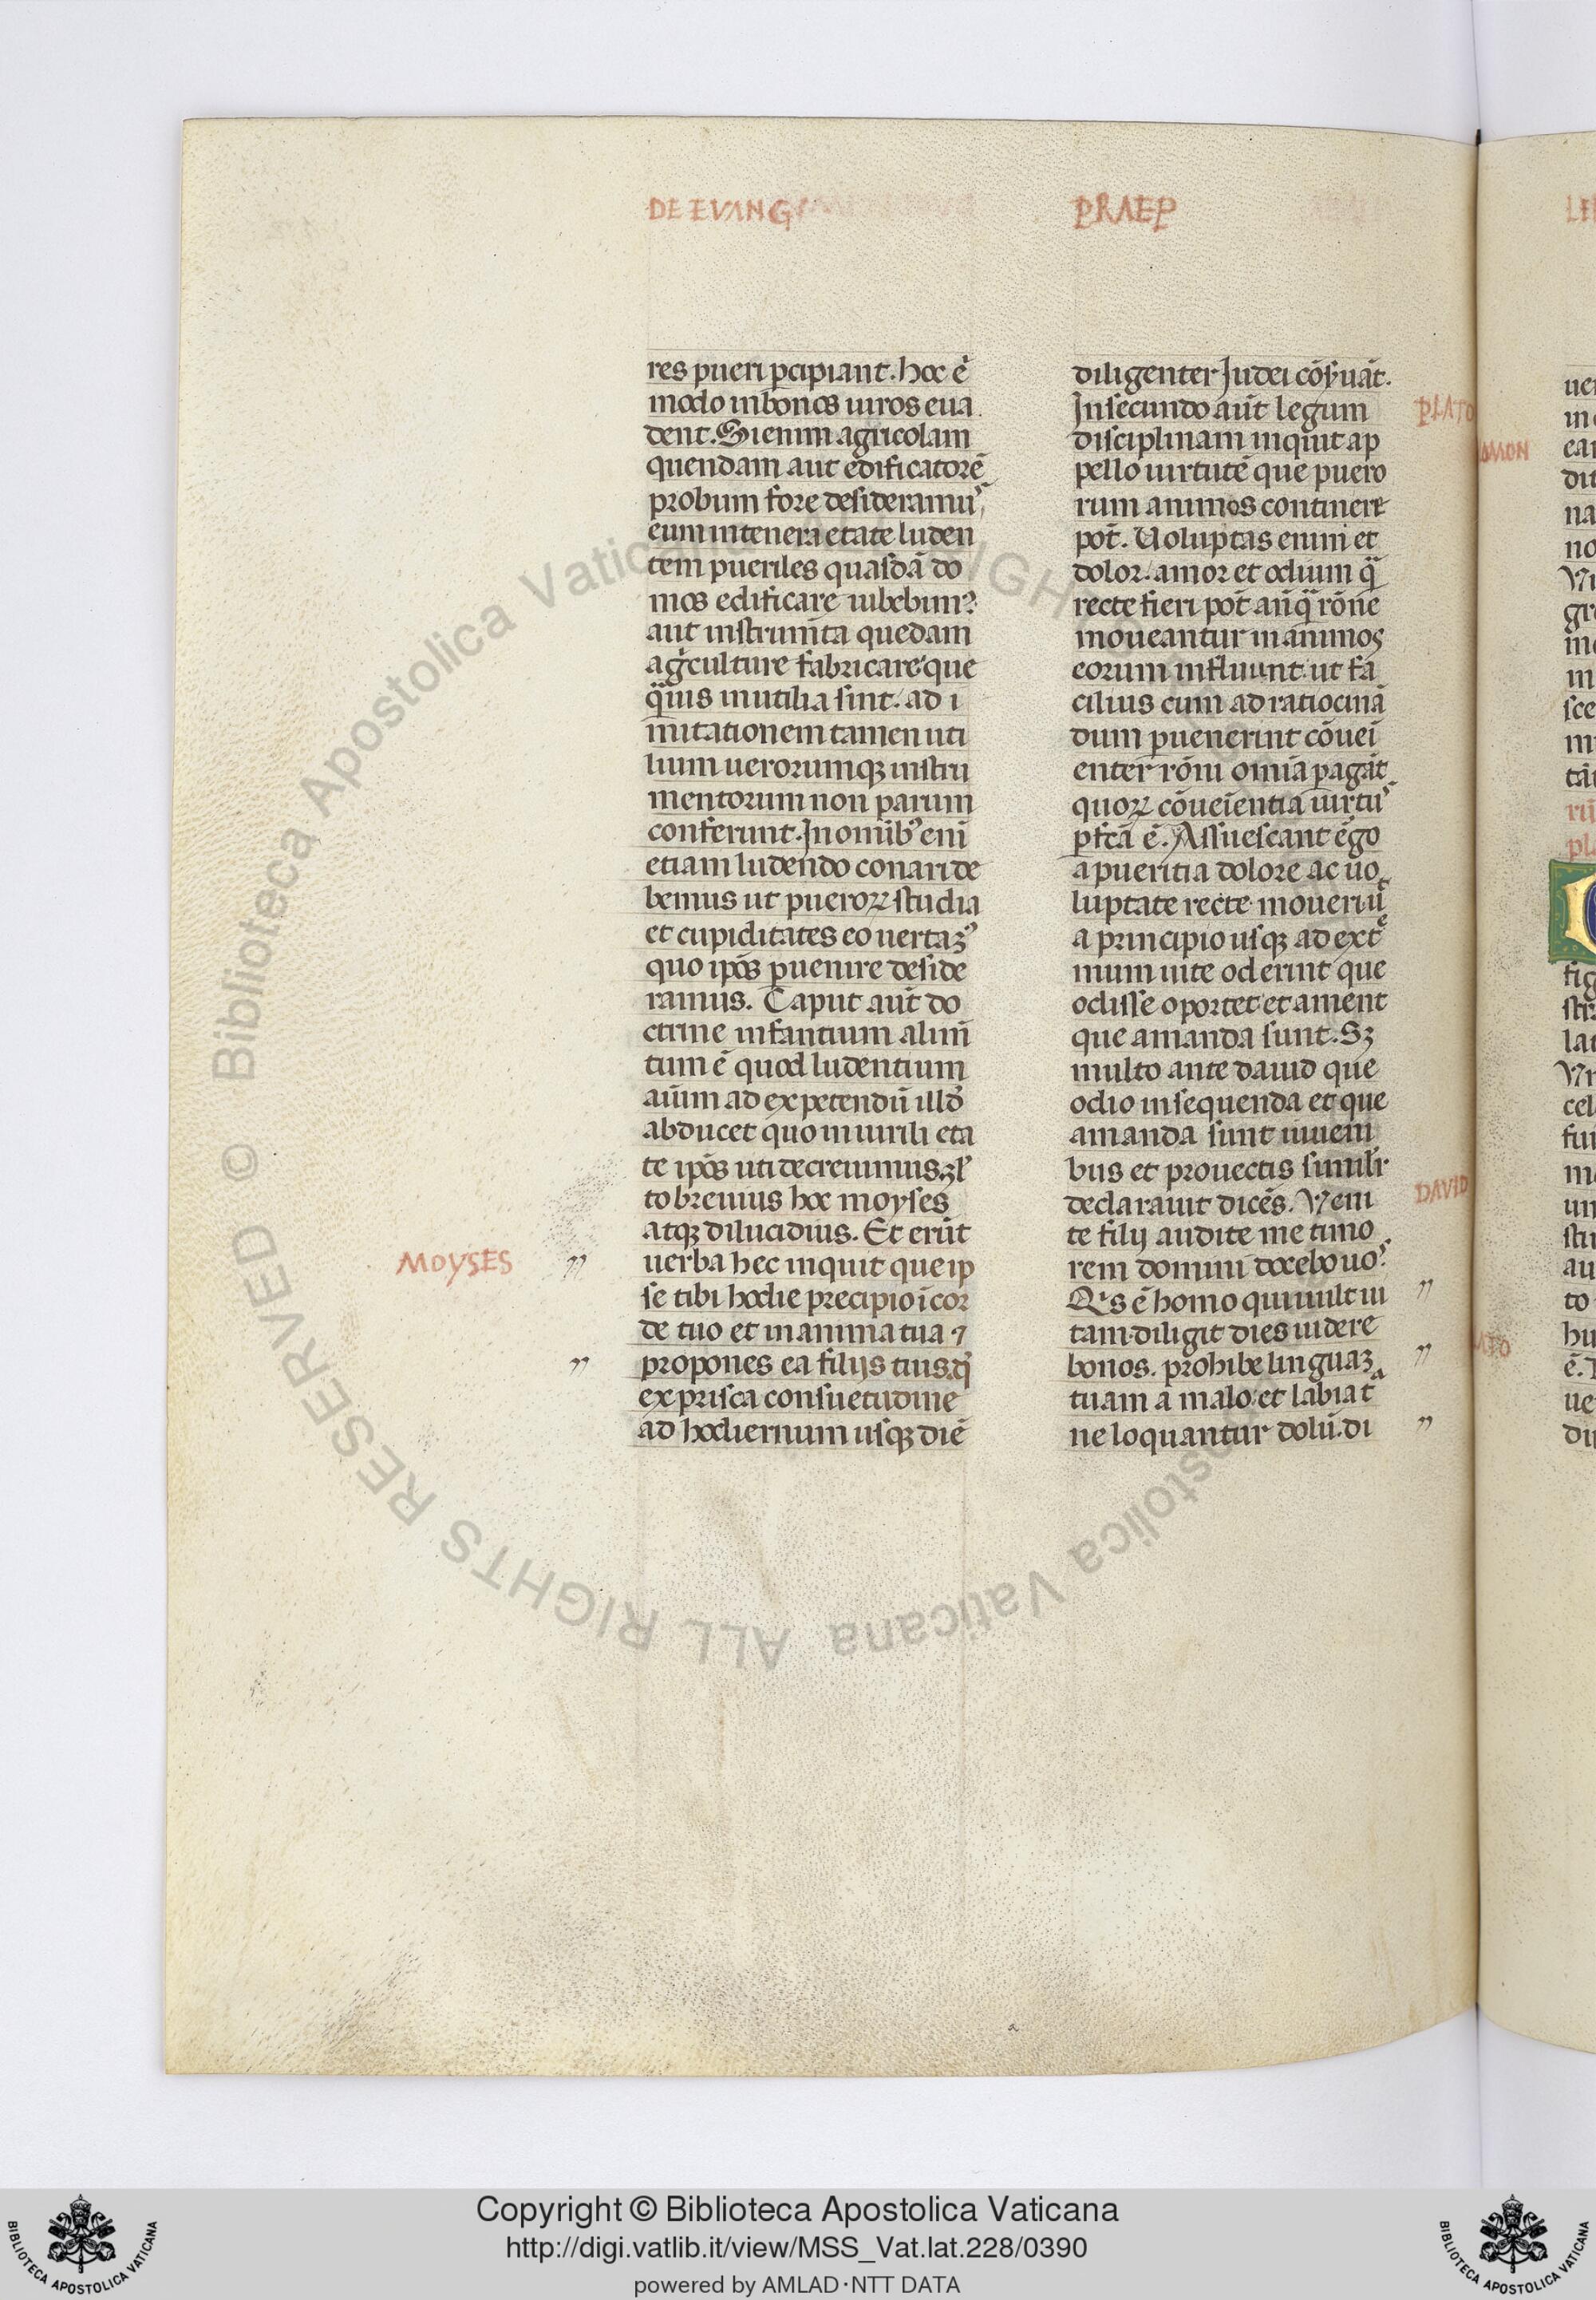 DE EVANG
PRAEP
res pueri ꝑcipiant. hoc ē
modo in bonos uiros eua
dent. Si enim agricolam
quendam aut edificatorē
probum fore desideramuꝰ
eum in tenera etate luden
tem pueriles quasdā do
mos edificare iubebimꝰ:
aut instrum̄ta quedam
agͥculture fabricare que
q̄uis inutilia sint: ad i
mitationem tamen uti
lium uerorumqꝫ instru
mentorum non parum
conferunt. In omībꝰ enī
etiam ludendo conari de
bemus ut pueroꝝ studia
et cupiditates eo uertamꝰ
quo ip̄os ꝑuenire deside
ramus. Caput aūt do
ctrine infantium alim̄
tum ē quod ludentium
aīum ad expetendū illd̄
abducet quo in uirili eta
te ip̄os uti decreuimus. Ml̓
to breuius hoc moyses
atqꝫ dilucidius. Et erūt
uerba hec inquit que ip
se tibi hodie precipio ī cor
de tuo et in anima tua ⁊
propones ea filijs tuis. qd̓
ex prisca consuetudine
ad hodiernum usqꝫ diē
MOYSES
diligenter Judei cōẜuāt.
In secundo aūt legum
disciplinam inquit ap
pello uirtutē que puero
rum animos continere
pōt. Uoluptas enim et
dolor: amor et odium q̄
recte fieri pōt anq̄ rōne
moueantur in animos
eorum influunt: ut fa
cilius cum ad ratiocinā
dum ꝑuenerint cōueī
enter rōni omīa ꝑagāt
quoꝝ cōueīentia uirtuꝰ
ꝑfcā ē. Assuescant ergo
a pueritia dolore ac uo
luptate recte moueri ut
a principio usqꝫ ad extre
mum uite oderint que
odisse oportet: et ament
que amanda sunt. Sꝫ
multo ante dauid que
odio insequenda et que
amanda sunt iuueni
bus et prouectis simil̓r
declarauit dicēs. Veni
te filij audite me timo
rem domini docebo uoꝰ.
Qͥs ē homo qui uult ui
tam: diligit dies uidere
bonos. prohibe linguaꝫ
tuam a malo: et labia tᵃ
ne loquantur dolū. di
PLATO
DAVID
Copyright © Biblioteca Apostolica Vaticana
http://digi.vatlib.it/view/MSS_Vat.lat.228/0390
powered by AMLAD·NTT DATA
BIBLIOTECA APOSTOLICA VATICANA
BIBLIOTECA APOSTOLICA VATICANA
© Biblioteca Apostolica Vaticana ALL RIGHTS RESERVED